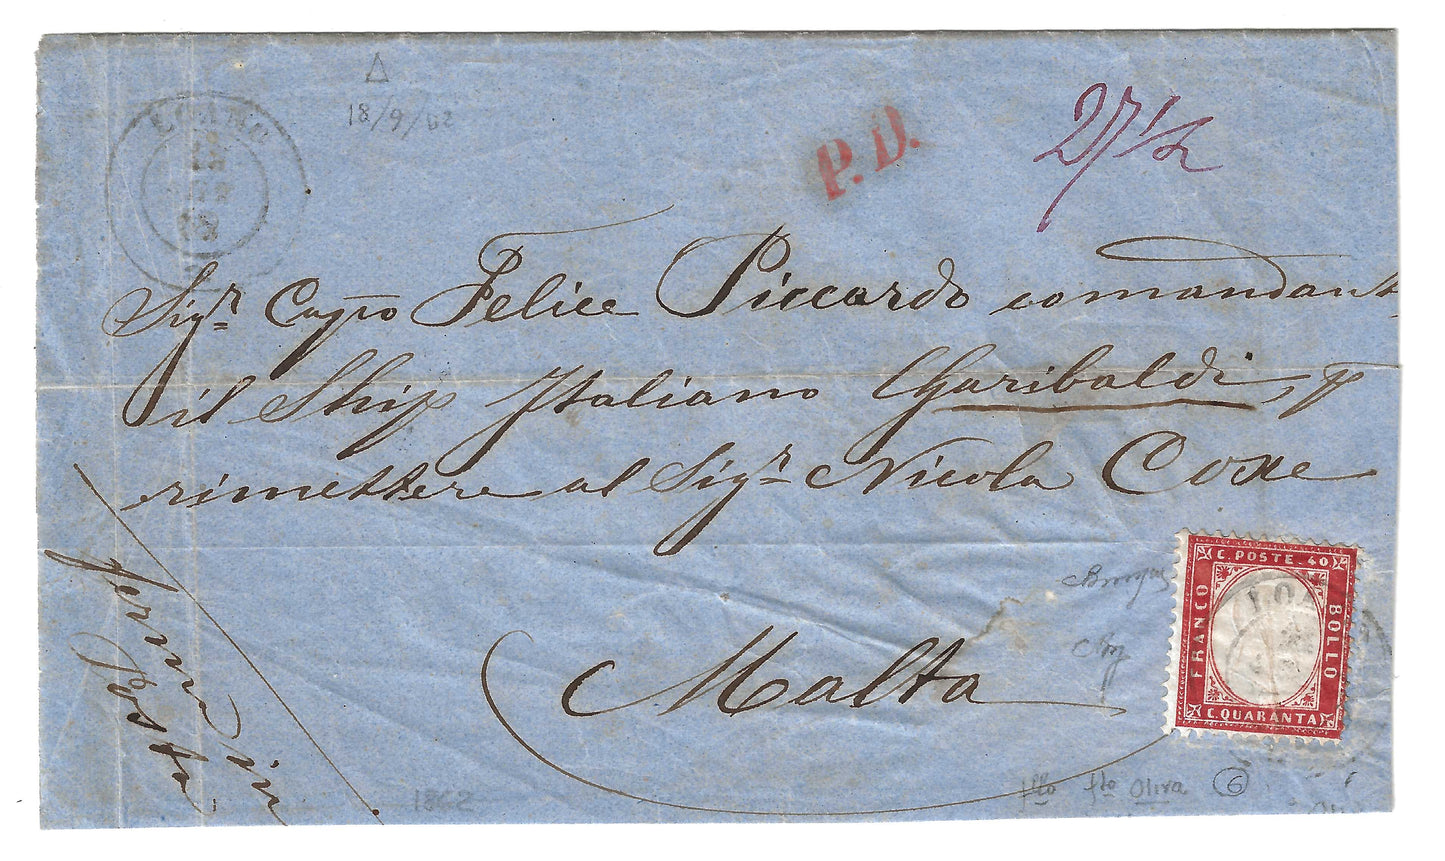 18/9/62
P.D.
27 1/2
LOANO
18
SET
62
Sigr. Capno Felice Piccardo comandante
il Ship Italiano Garibaldi, p
rimettere al Sigr. Nicola Coxe
Malta
ferma in
Posta
C. POSTE. 40
FRANCO
BOLLO
C. QUARANTA
LOA
1862
fllo fto Oliva 6